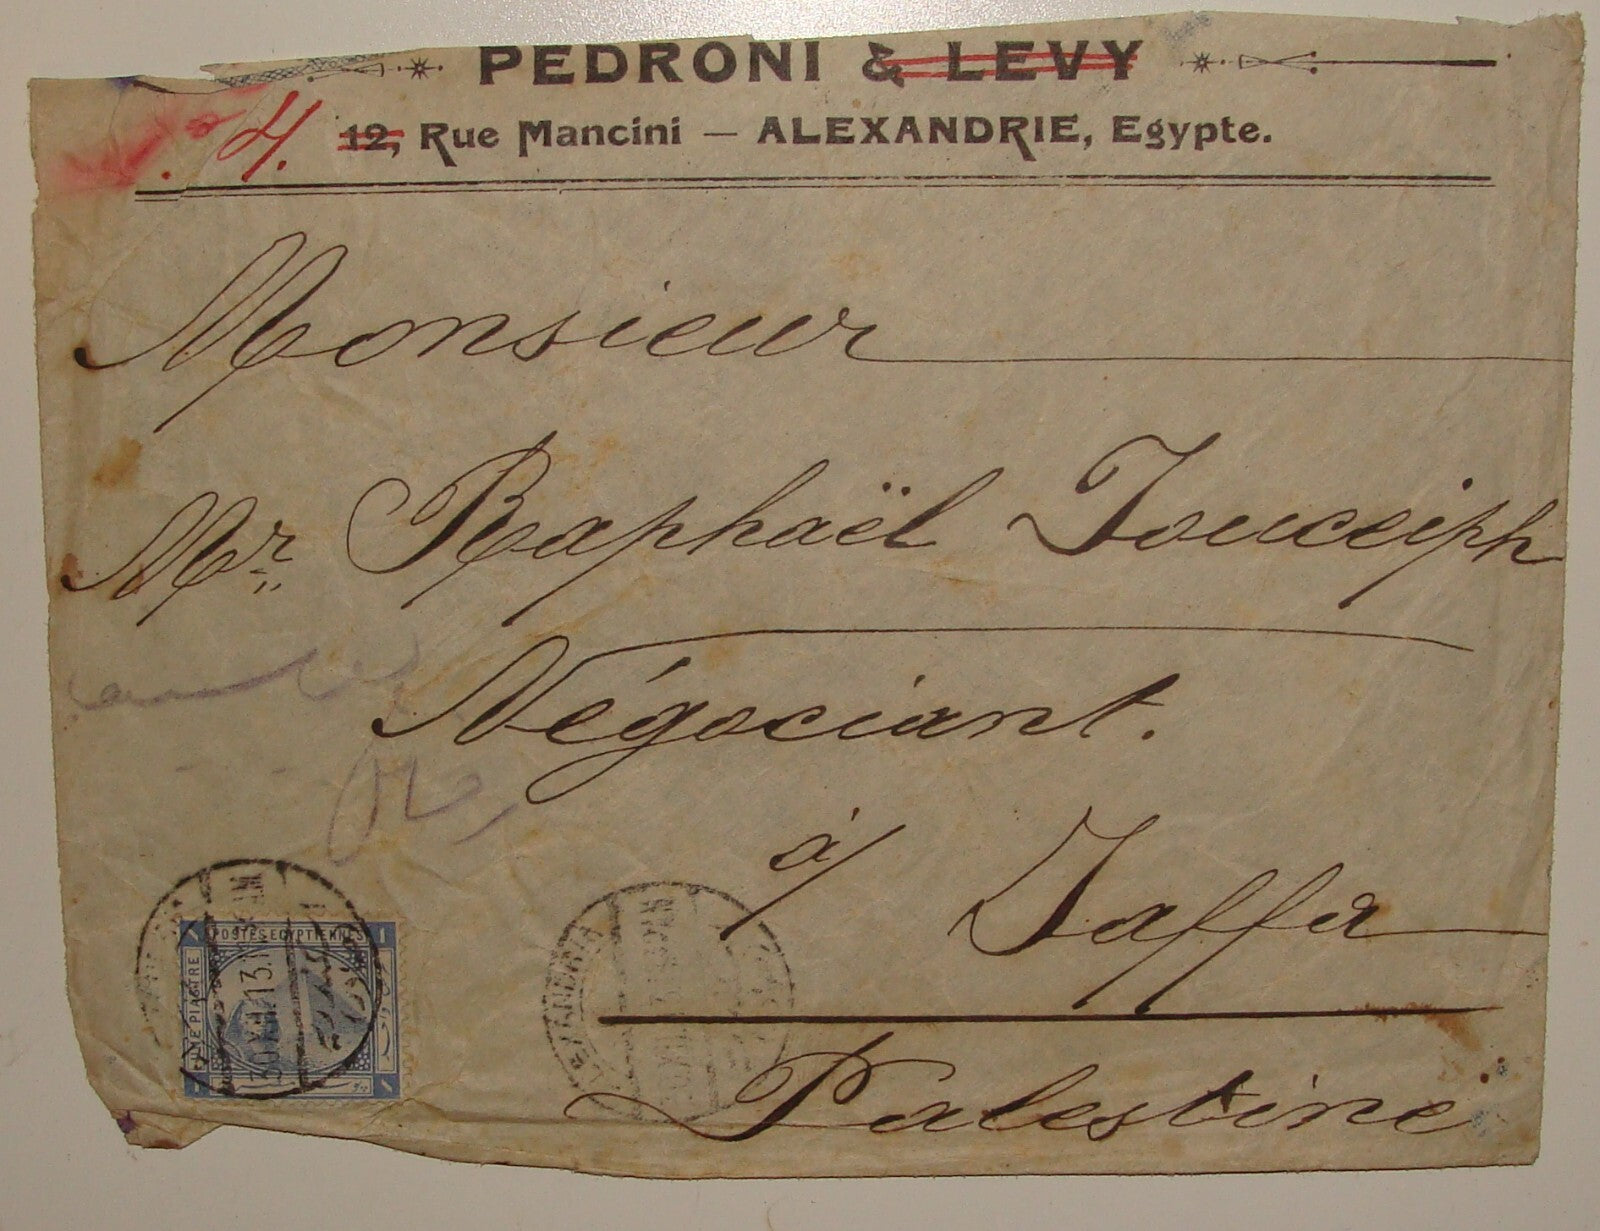 PEDRONI & LEVY
4. 12, Rue Mancini — ALEXANDRIE, Egypte.
Monsieur
Mr Raphaël Jouceiph
Négociant.
à/ Jaffa
Palestine
POSTES EGYPTIENNES
UNE PIASTRE
1
1
30 XII 13
ALEXANDRIA